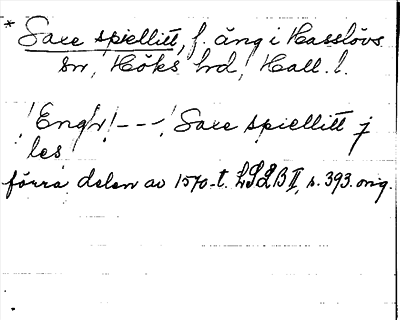 * Saxe spiellitt, f. äng i Hasslövs
sn, Höks hd, Hall. l.
! Engh! - - -! Saxe spiellitt j
les
förra delen av 1570-t. LSLB II, s. 393. orig.